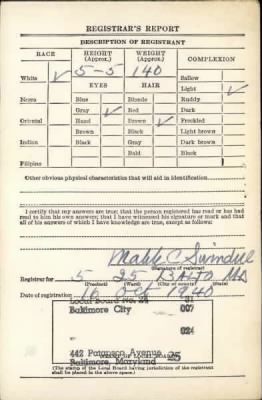 REGISTRAR'S REPORT
DESCRIPTION OF REGISTRANT
RACE HEIGHT (Approx.) WEIGHT (Approx.) COMPLEXION
White ✓ 5-5 140 Sallow
EYES HAIR Light ✓
Negro Blue Blonde Ruddy
Gray ✓ Red Dark
Oriental Hazel Brown ✓ Freckled
Brown Black Light brown
Indian Black Gray Dark brown
Bald Black
Filipino
Other obvious physical characteristics that will aid in identification
I certify that my answers are true; that the person registered has read or has had
read to him his own answers; that I have witnessed his signature or mark and that
all of his answers of which I have knowledge are true, except as follows:
C
(Signature of registrar)
Registrar for 5 25 BALTO Md
(Precinct) (Ward) (City or county) (State)
Date of registration 16 Oct 1940
Local Board No. 31
Baltimore City 007
024
442 Patapsco Avenue
Baltimore, Maryland
(STAMP OF LOCAL BOARD)
(The stamp of the Local Board having jurisdiction of the registrant
shall be placed in the above space.)